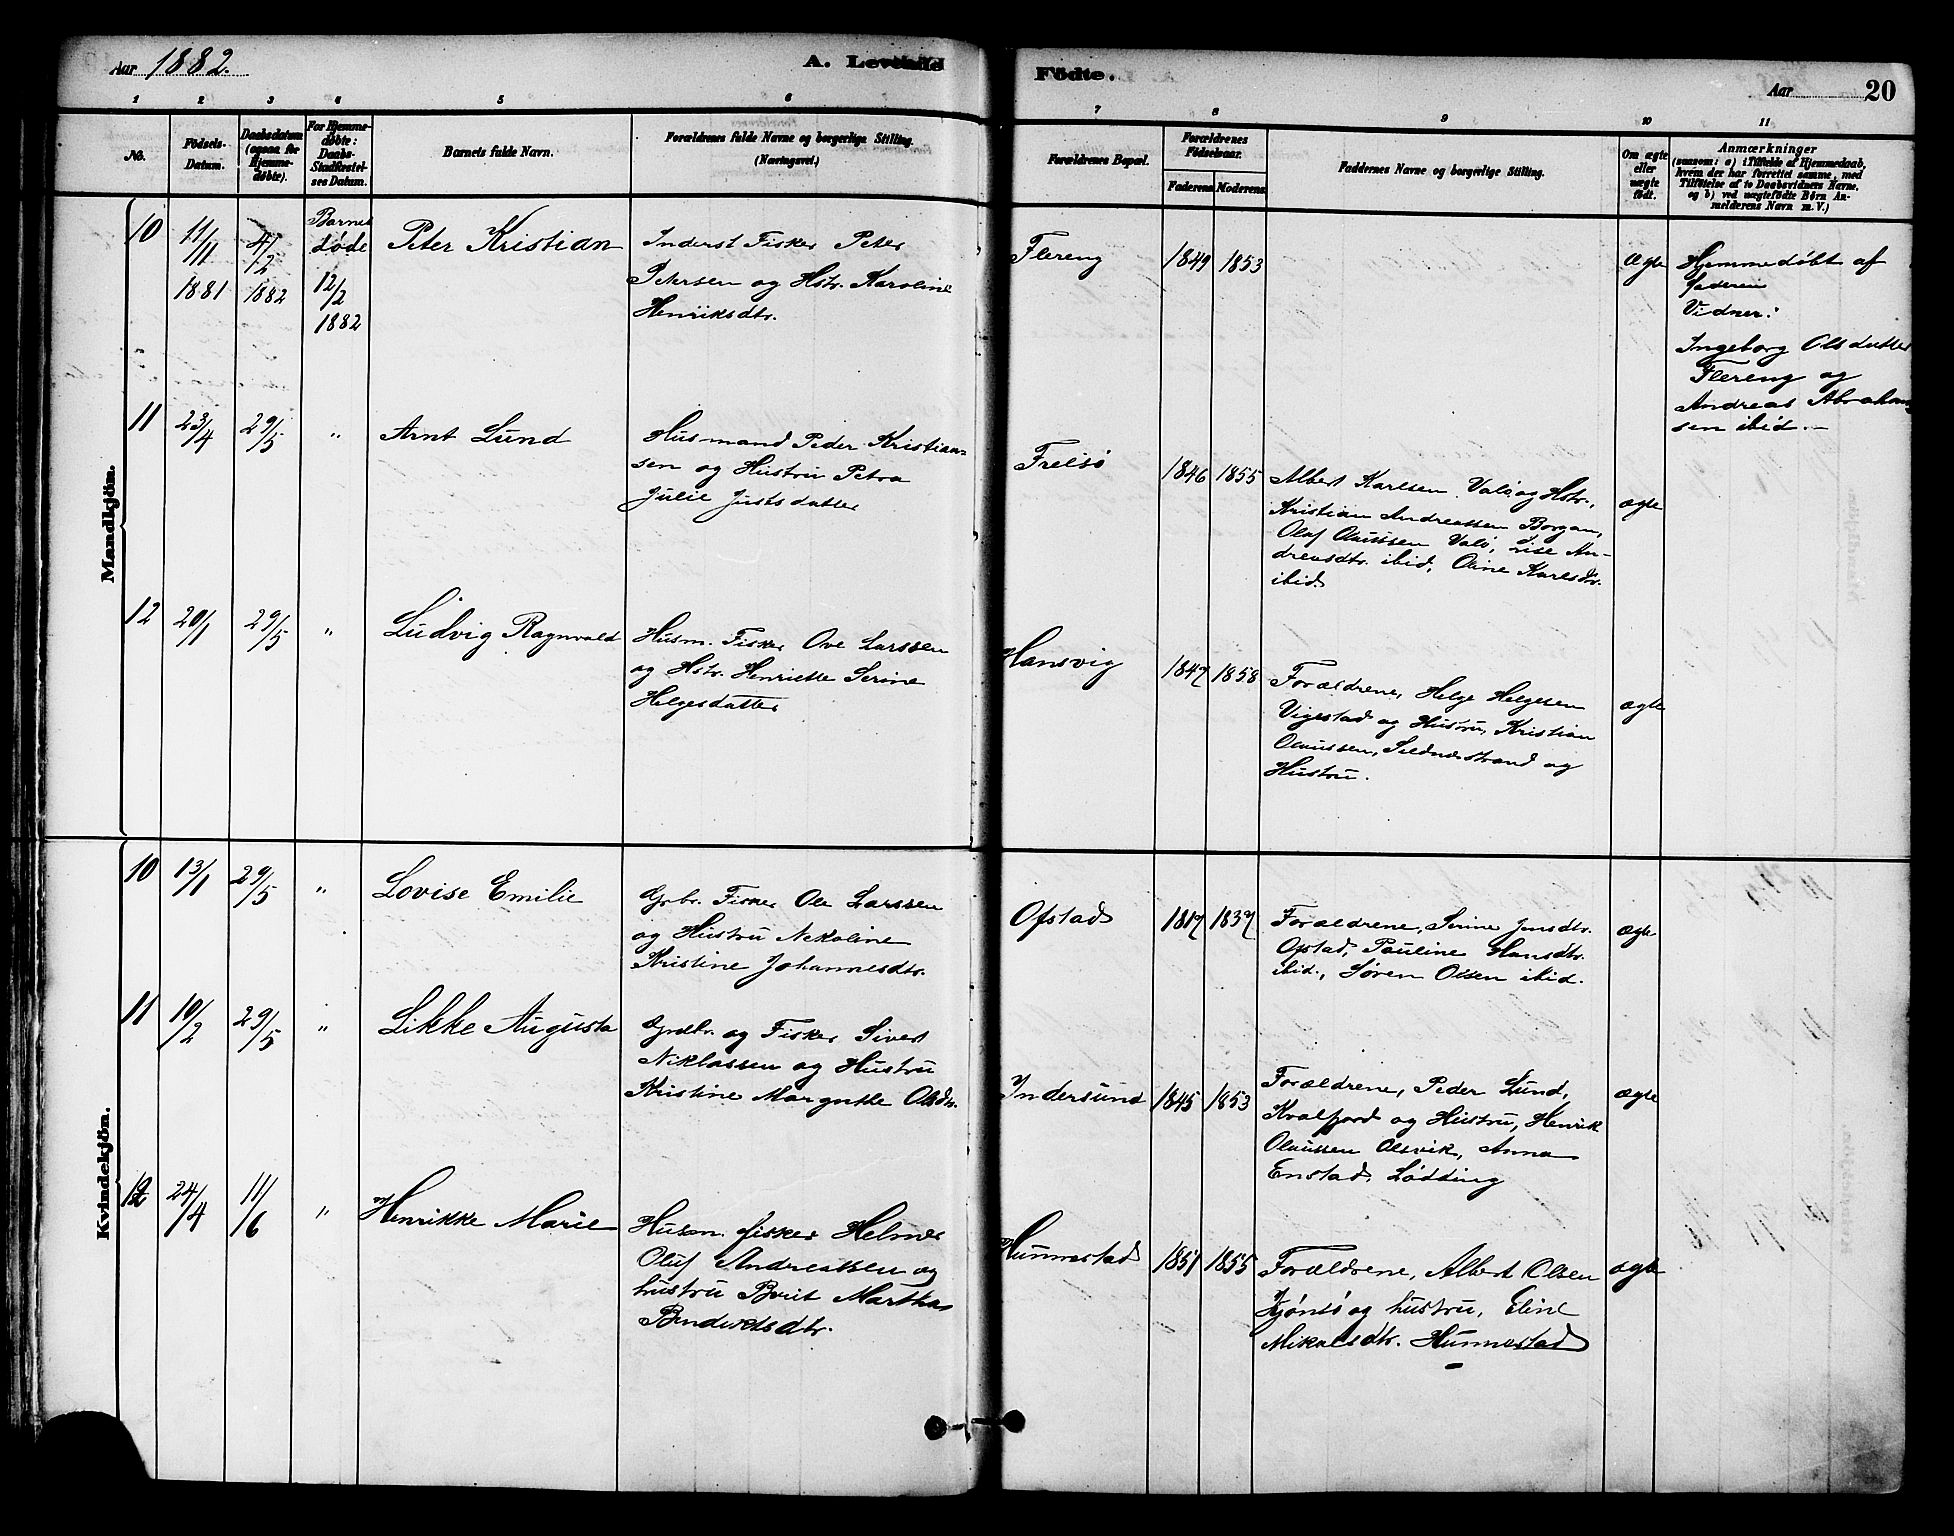 Aar 1882.
A. Levende
Födte.
Aar
20
1 2 3 4 5 6 7 8 9 10 11
No.
Födsels-
Datum.
Daabsdatum
(ogsaa for
Hjemme-
døbte).
For Hjemme-
døbte:
Daabs-
Stadfæstel-
ses Datum.
Barnets fulde Navn.
Forældrenes fulde Navne og borgerlige Stilling.
(Næringsvei.)
Forældrenes Bopæl.
Forældrenes
Födselsaar.
Faderens. Moderens.
Faddernes Navne og borgerlige Stilling.
Om ægte
eller
uægte
født.
Anmærkninger
(saasom: a) i Tilfælde af Hjemmedaab,
hvem der har forrettet samme, med
Tilföielse af to Daabsvidners Navne,
og b) ved uægtefödte Börn An-
melderens Navn m. V.)
Mandkjön.
10
11/11
1881
4/12
1882
Barnet
døde
12/2
1882
Peter Kristian
Inderst Fisker Peter
Petersen og Hstr. Karoline
Henriksdtr.
Flereng
1849 1853
Ægte
Hjemmedøbt af
faderen
Vidner:
Ingeborg Olsdatter
Flereng og
Andreas Abraham-
sen ibid.-
11
23/4
29/5
"
Arnt Lund
Husmand Peder Kristian-
sen og Hustru Petra
Julie Justsdatter
Frelsö
1846 1855
Albert Karlsen Valö og Hstr.,
Kristian Andreassen Borgan,
Olaf Olaussen Valö, Lise An-
dreasdtr. ibid, Oline Karlsdtr.
ibid
ægte
12
20/1
29/5
"
Ludvig Ragnvald
Husm. Fisker Ove Larssen
og Hstr. Henriette Serine
Helgesdatter
Hansvig
1847 1858
Forældrene, Helge Helgesen
Vigestad og Hustru, Kristian
Olaussen, Sildnæstrand og
Hustru.
ægte
Kvindekjön.
10
13/1
29/5
"
Lovise Emilie
Gbr. Fisker Ole Larssen
og Hustru Nekoline
Kristine Johannesdtr.
Ofstad
1817 1837
Forældrene, Serine Jensdtr.
Ofstad, Pauline Hansdtr.
ibid., Søren Olsen ibid.
ægte
11
10/2
29/5
"
Likke Augusta
Grdbr. og Fisker Sivert
Niklassen og Hustru
Kristine Margrethe Olsdtr.
Indersund
1845 1853
Forældrene, Peder Lund,
Kvalfjord og Hustru, Henrik
Olaussen Olsvik, Anna
Enstad, Lødding
ægte
12
24/4
11/6
"
Henrikke Marie
Husm. fisker Helmer
Oluf Andreassen og
hustru Berit Martha
Bendixtsdtr.
Hunnestad
1851 1855
Forældrene, Albert Olsen
Kjönsö og hustru, Eline
Mikalsdtr. Hunnestad
ægte